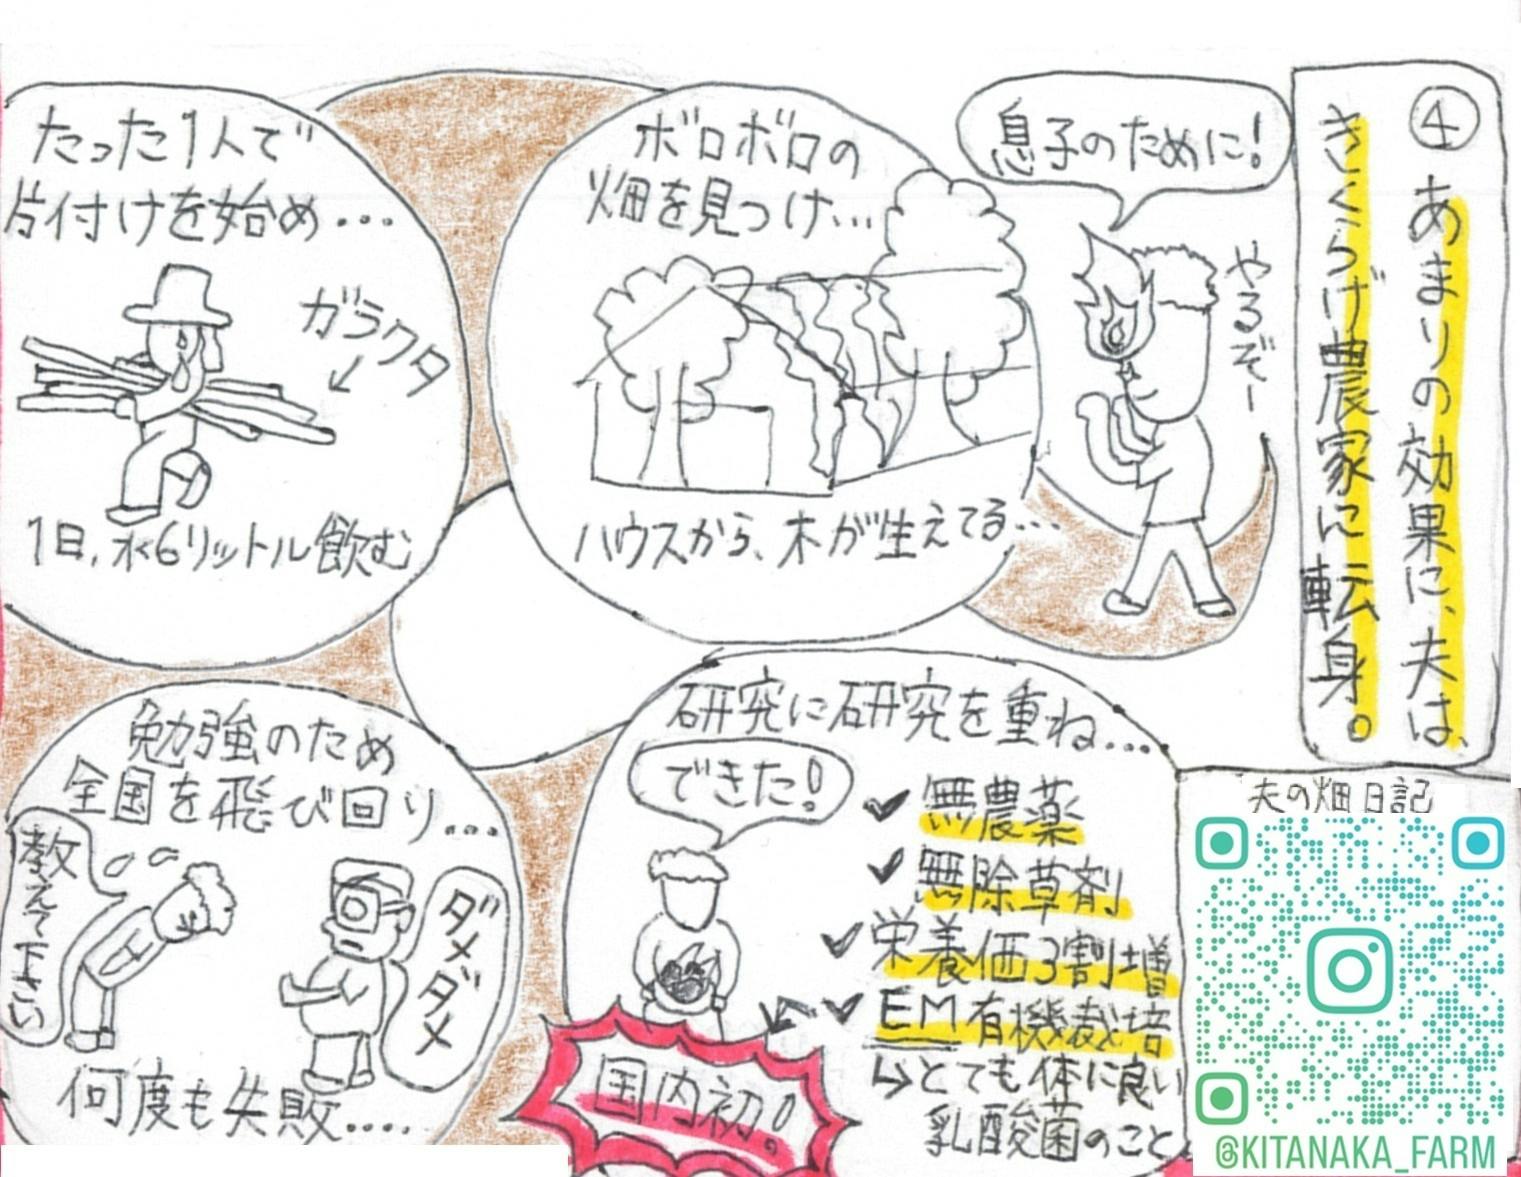 ④ あまりの効果に、夫は、
きくらげ農家に転身。
息子のために!
やるぞー
ボロボロの
畑を見つけ…
ハウスから、木が生えてる…
たった1人で
片付けを始め…
ガラクタ
1日、水6リットル飲む
勉強のため
全国を飛び回り…
教えて下さい
ダメダメ
何度も失敗….
研究に研究を重ね….
できた!
✓ 無農薬
✓ 無除草剤
✓ 栄養価3割増
✓ EM有機栽培
↳とても体に良い
乳酸菌のこと
国内初!
夫の畑日記
@KITANAKA_FARM